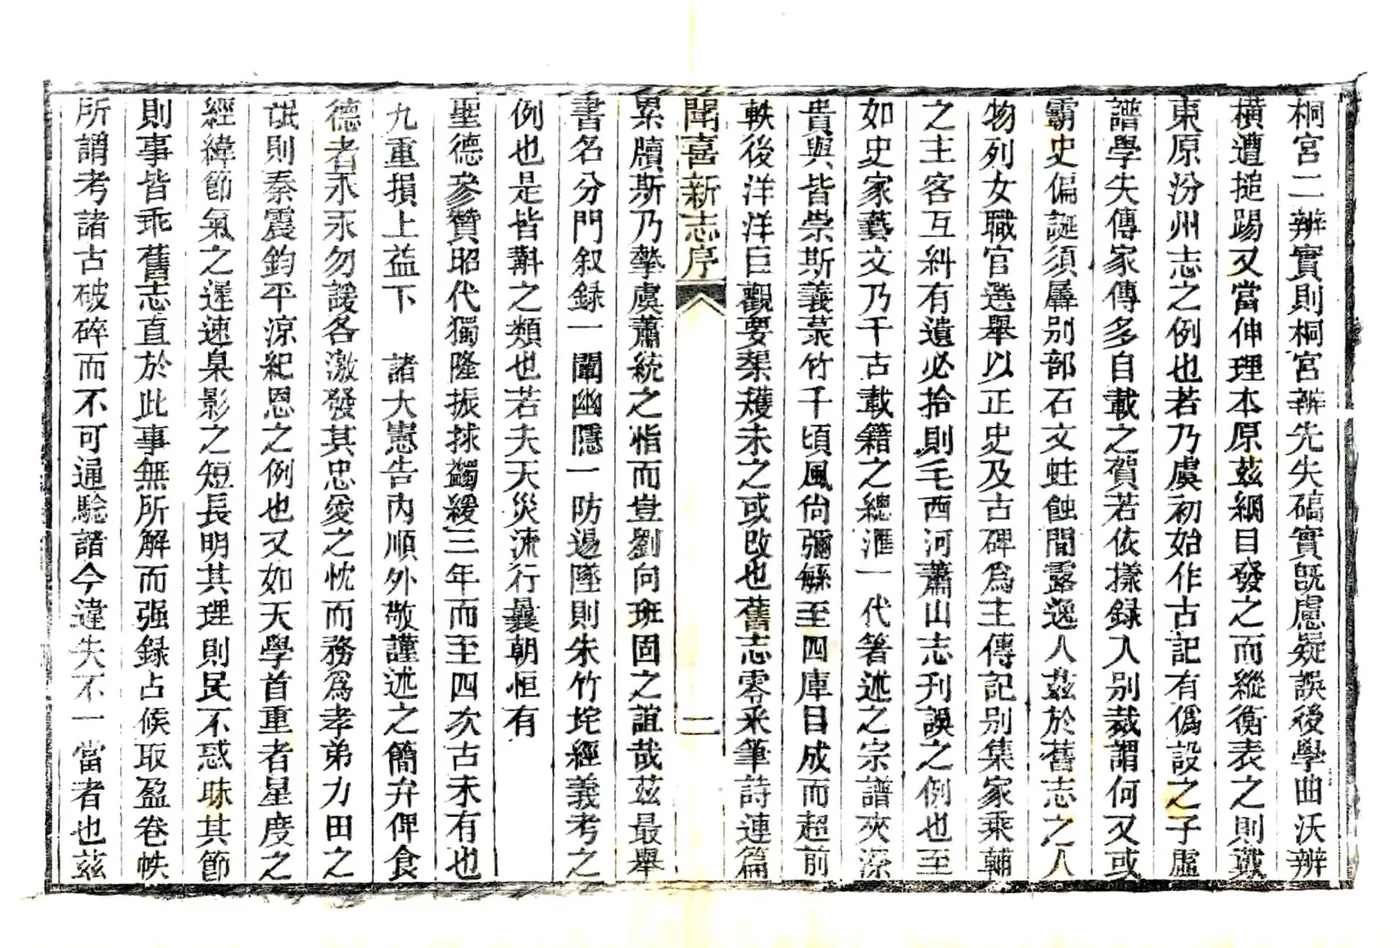 桐宮二辨實則桐宮辨先失礄實旣慮疑誤後學曲沃辨
橫遭搥踢又當伸理本原茲綱目發之而縱衡表之則戴
東原汾州志之例也若乃虞初始作古記有僞設之子虛
譜學失傳家傳多自載之賀若依㨾録入別裁謂何又或
霸史偏誕須屏别部石文蛀蝕間露逸人茲於舊志之人
物列女職官選舉以正史及古碑爲主傳記别集家乘輔
之主客互糾有遺必拾則毛西河蕭山志刋誤之例也至
如史家藝文乃千古載籍之總滙一代箸述之宗譜夾漈
貴與皆崇斯義菉竹千頃風尙彌繇至四庫目成而超前
軼後洋洋巨觀要榘矱未之或改也舊志零釆筆詩連篇
聞喜新志序 二
累牘斯乃摯虞蕭統之恉而豈劉向班固之誼哉茲最舉
書名分門叙録一闡幽隱一防遏墜則朱竹垞經義考之
例也是皆斠之類也若夫天災流行曩朝恒有
聖德參贊昭代獨隆振捄蠲緩三年而至四次古未有也
九重損上益下 諸大憲告內順外敬謹述之簡弁俾食
德者永永勿諼各激發其忠愛之忱而務爲孝弟力田之
氓則秦震鈞平涼紀恩之例也又如天學首重者星度之
經緯節氣之遲速臬影之短長明其理則民不惑昧其節
則事皆乖舊志直於此事無所解而强録占候取盈卷帙
所謂考諸古破碎而不可通驗諸今違失不一當者也茲